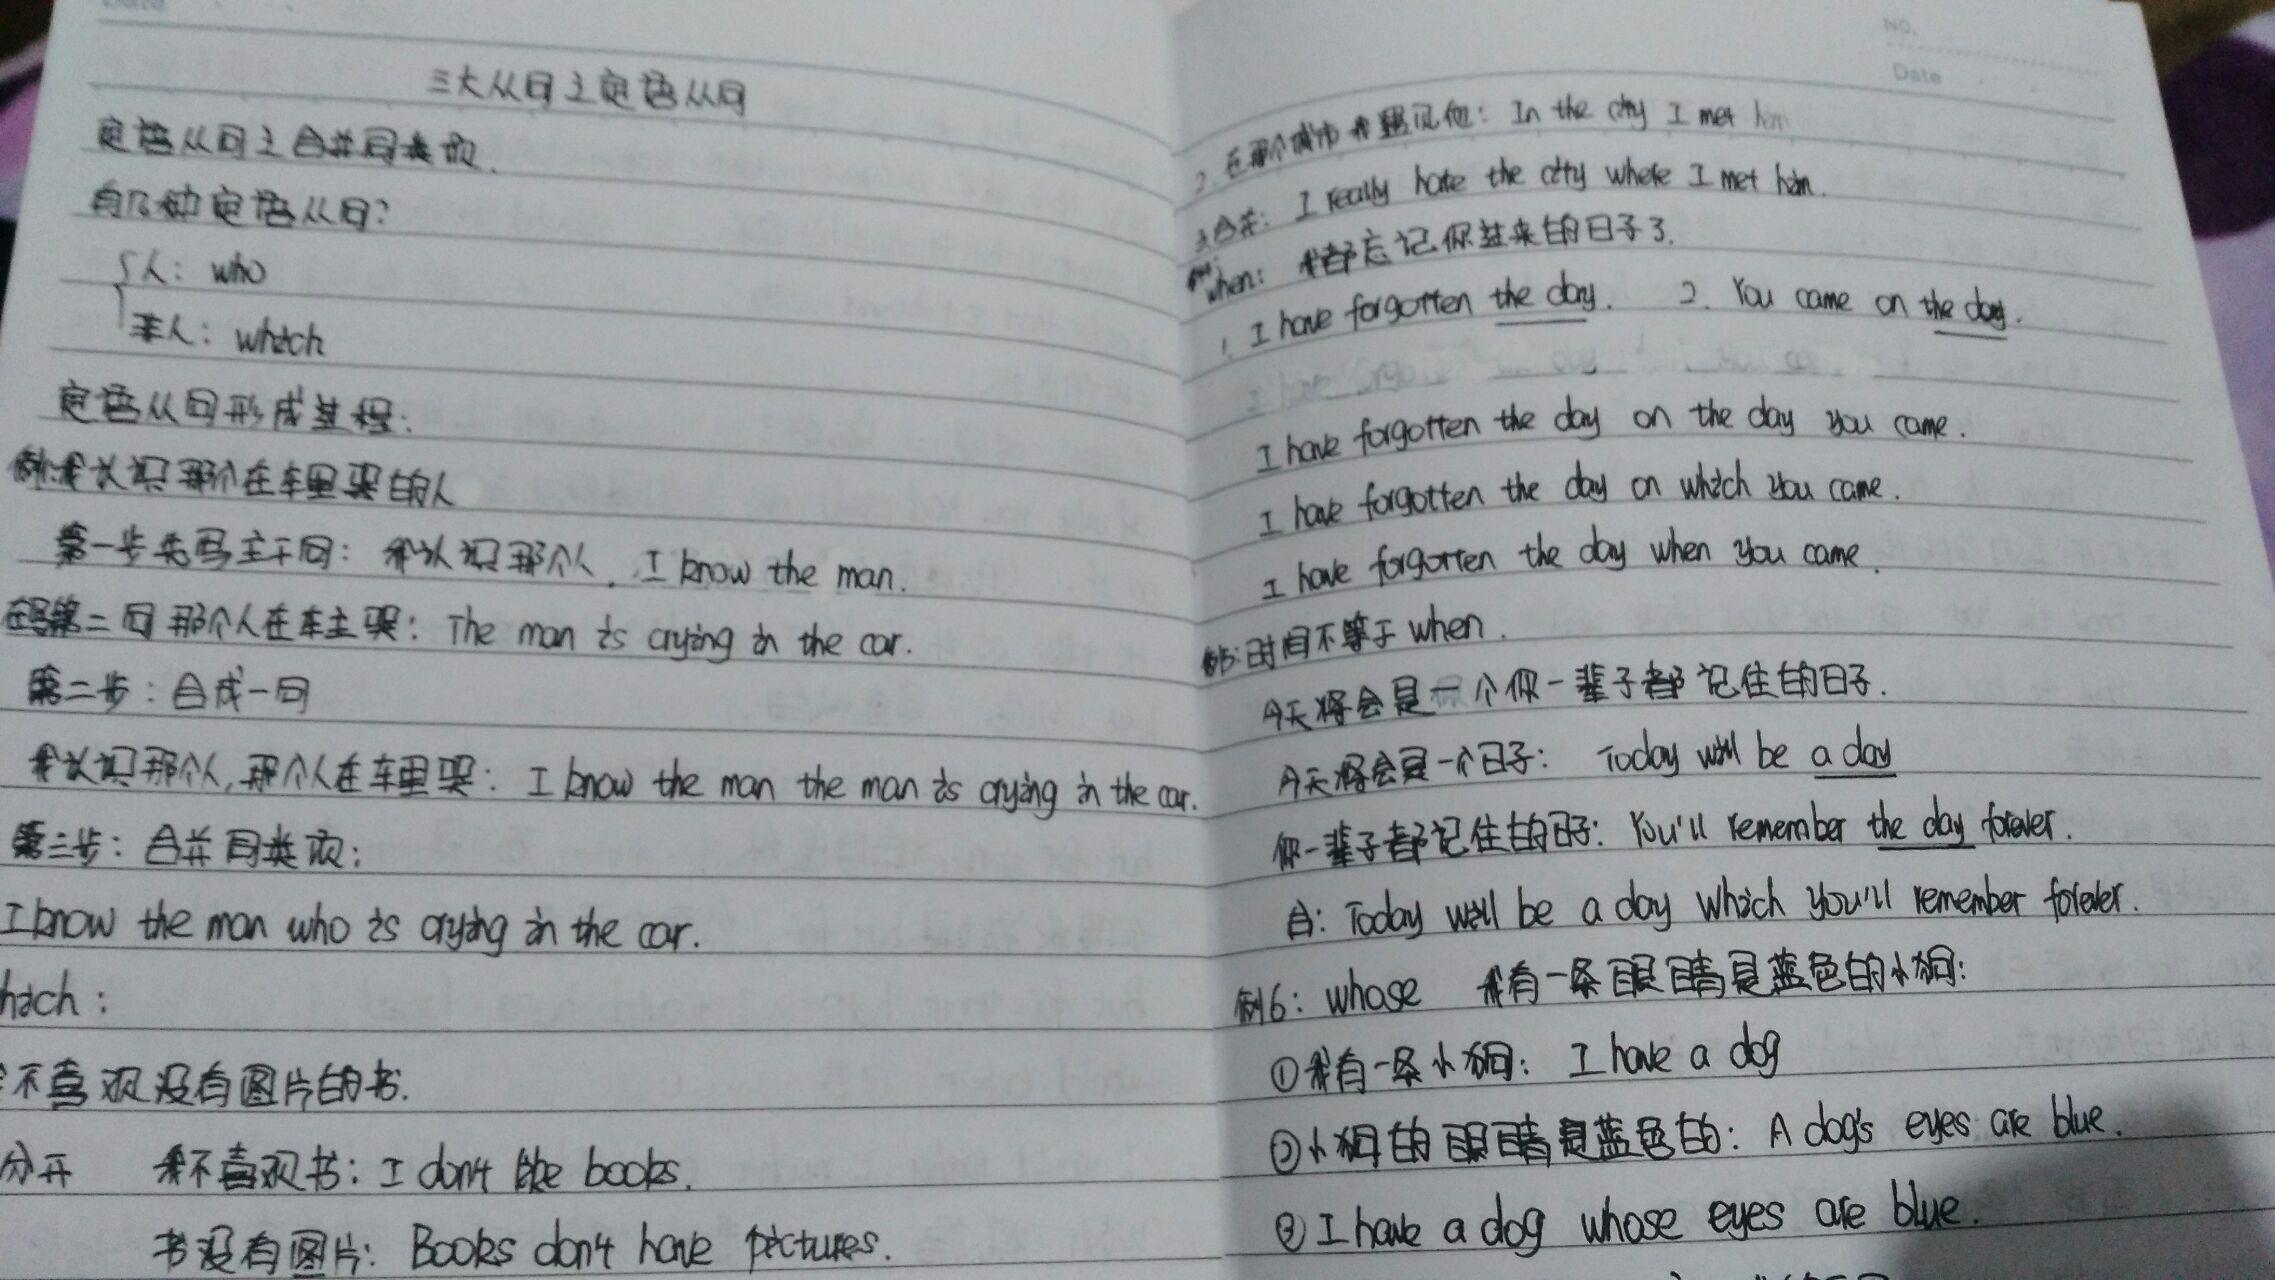 三大从句之定语从句
定语从句之合并同类项.
有几种定语从句?
人: who
非人: which
定语从句形成过程:
例:我认识那个在车里哭的人
第一步先写主干句: 我认识那个人. I know the man.
在写第二句 那个人在车主哭: The man is crying in the car.
第二步: 合成一句
我认识那个人,那个人在车里哭: I know the man the man is crying in the car.
第三步: 合并同类项:
I know the man who is crying in the car.
hich:
不喜欢没有图片的书.
分开 我不喜欢书: I don't like books.
书没有图片: Books don't have pictures.
NO.
Date
2. 在那个城市我遇见他: In the city I met him
3合并: I really hate the city where I met him.
when: 我都忘记你过来的日子了.
1. I have forgotten the day. 2. You came on the day.
I have forgotten the day on the day you came.
I have forgotten the day on which you came.
I have forgotten the day when you came.
例5:时间不等于when.
今天将会是一个你一辈子都记住的日子.
今天将会是一个日子: Today will be a day
你一辈子都记住的日子: You'll remember the day forever.
合: Today will be a day which you'll remember forever.
例6: whose 我有一条眼睛是蓝色的小狗:
①我有一条小狗: I have a dog
②小狗的眼睛是蓝色的: A dog's eyes are blue.
③I have a dog whose eyes are blue.